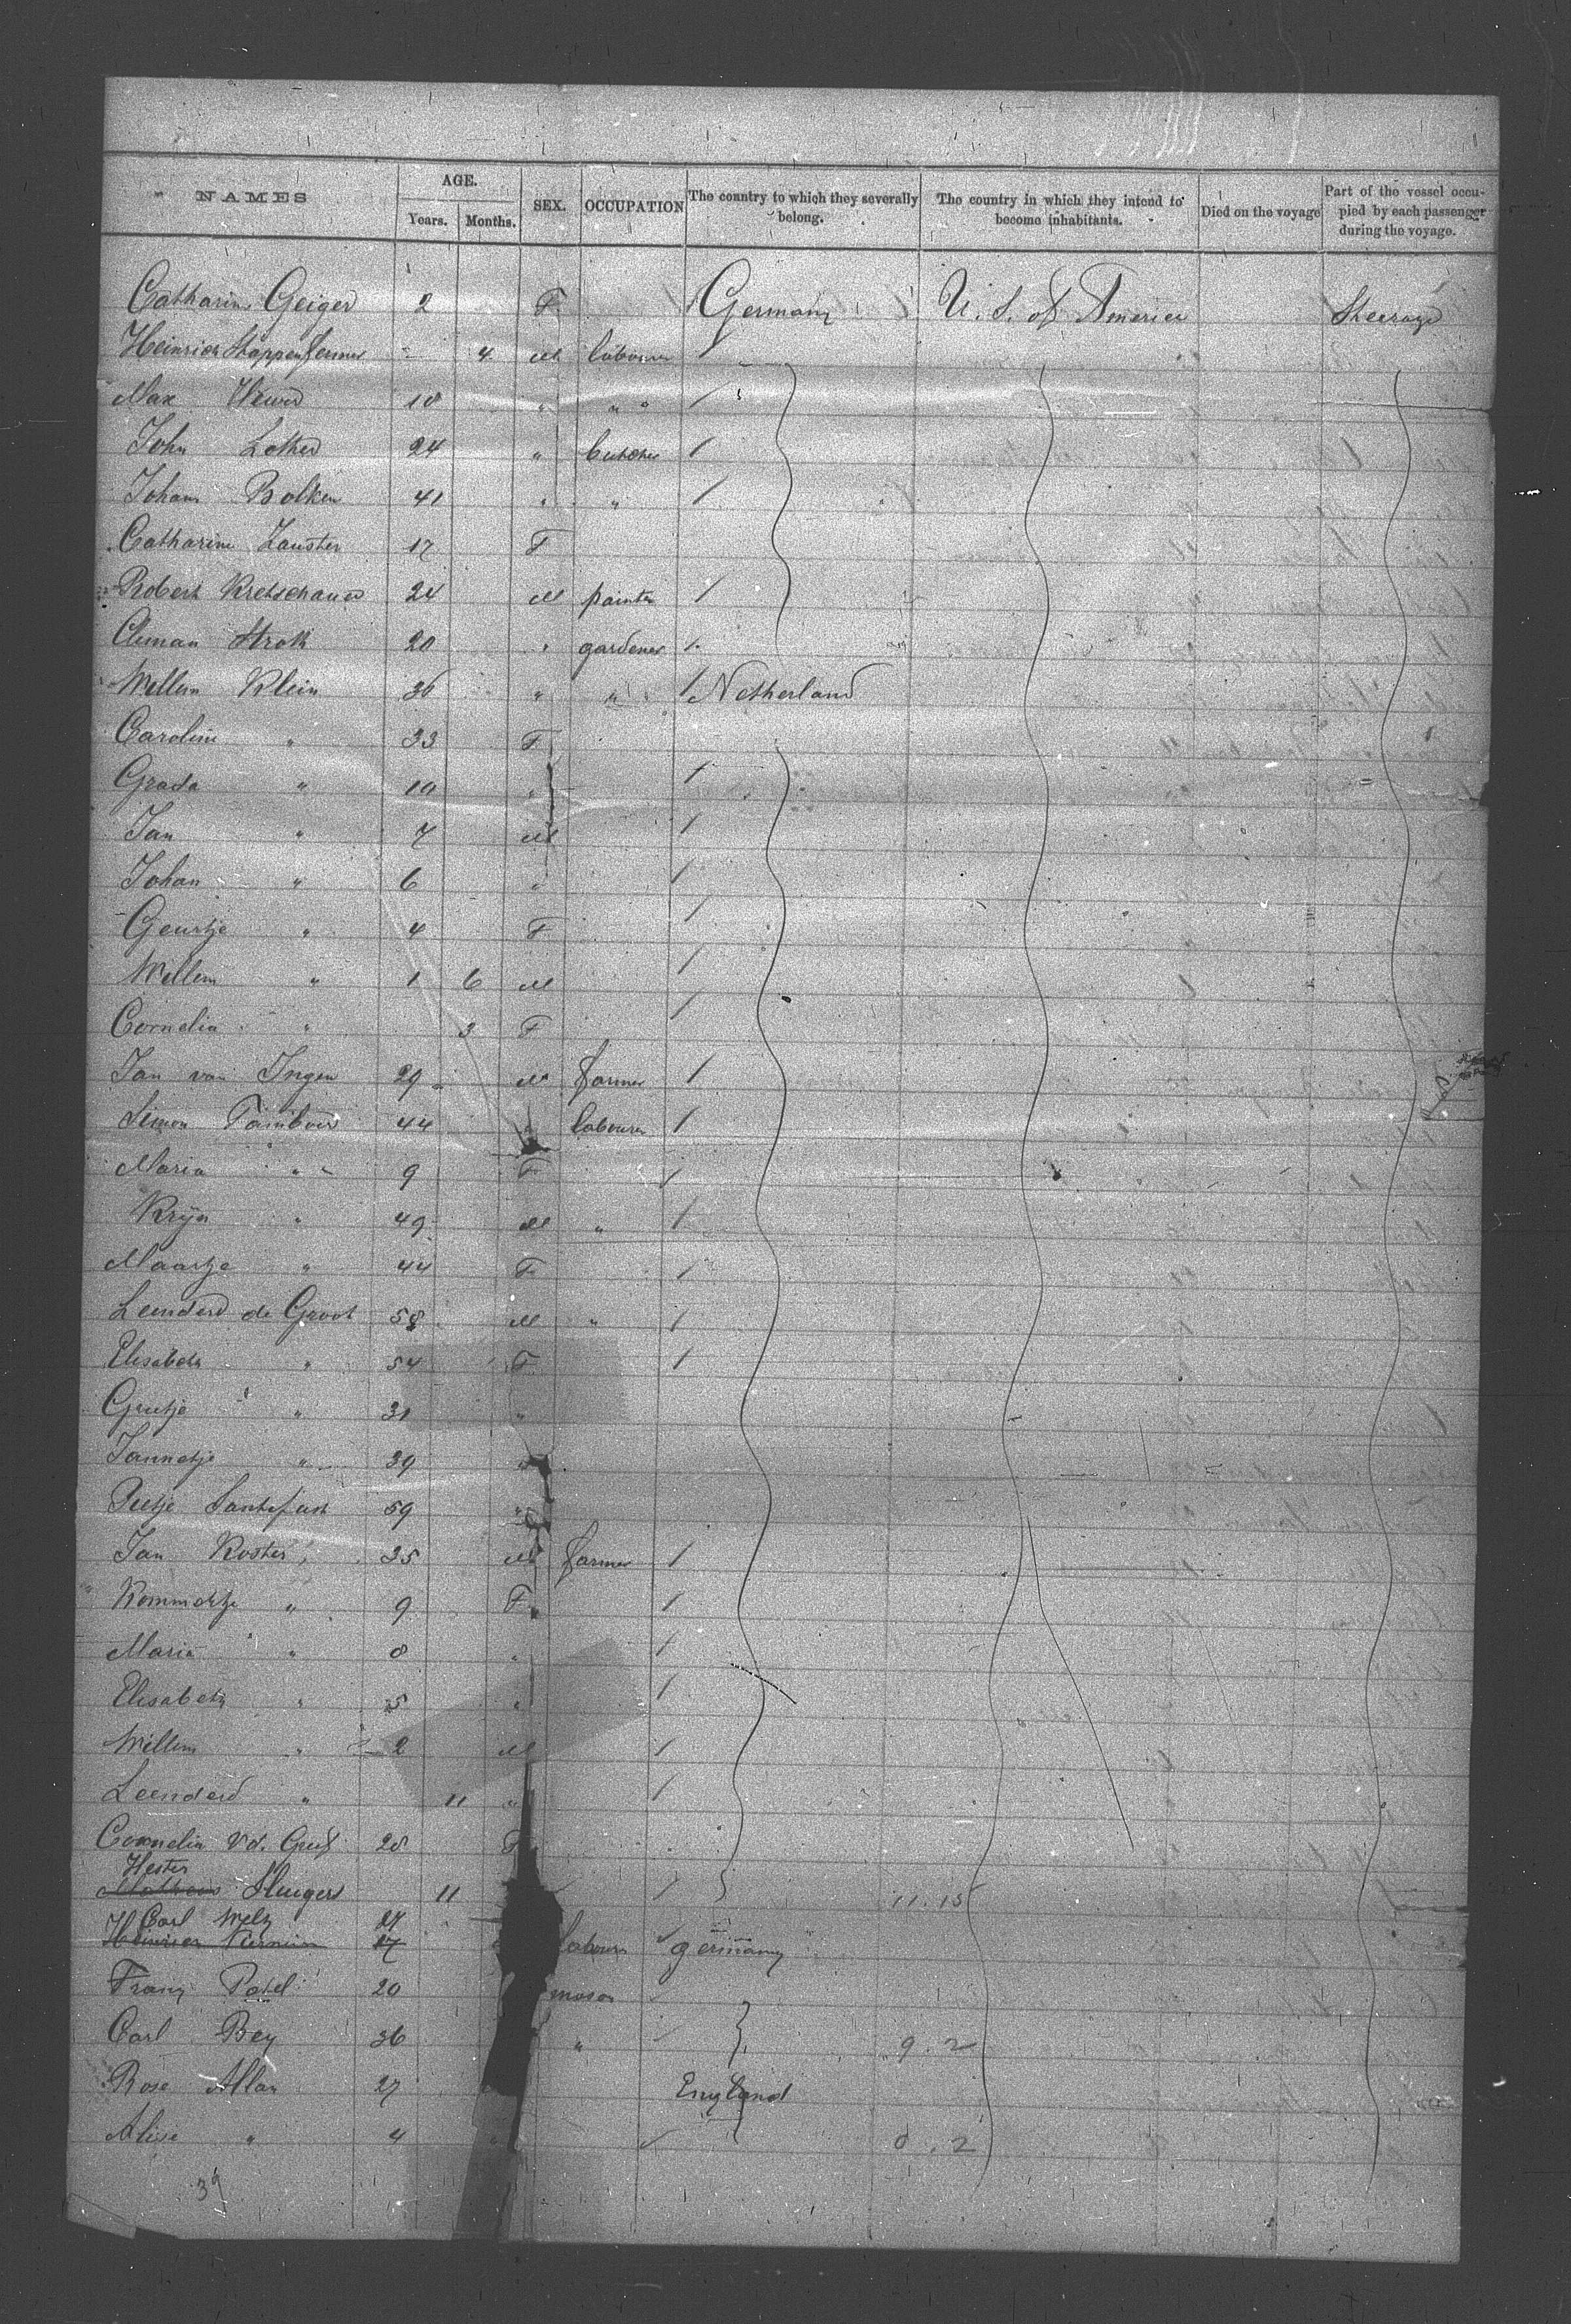 NAMES AGE. Years. Months. SEX. OCCUPATION The country to which they severally belong. The country in which they intend to become inhabitants. Died on the voyage Part of the vessel occupied by each passenger during the voyage.
Catharine Geiger 2 F Germany U. S. of America Steerage
Heinrich 4 M labourer
Max 18 " "
John Lother 24 " butcher
Johans Bolken 41 " "
Catharine Zauster 17 F
Robert Kretschauer 24 M painter
Cleman Strok 20 " gardener
Willem Klein 36 " " Netherland
Caroline " 33 F
Grada " 10 "
Jan " 7 M
Johan " 6 "
Geurtje " 4 F
Willem " 1 6 M
Cornelia " 3 F
Jan van Ingen 29 M farmer
Simon Tambour 44 " labourer
Maria " 9 F
Krijn " 49 M "
Maartje " 44 F
Leenderd de Groot 58 M "
Elisabeth " 54 F
Grietje " 31 "
Jannetje " 39 "
Pietje 59 "
Jan Koster 35 M farmer
Kommertje " 9 F
Maria " 8 "
Elisabeth " 5 "
Willem " 2 M
Leenderd " 11 "
Cornelia vd. 28 F
Hester
Slingers 11 11.15
Carl Welz 27
Heinrich 17 labourer germany
Franz Patel 20 mason
Carl Bey 36 " 9.2
Rose Allan 27 England
Alise " 4 " 0.2
39